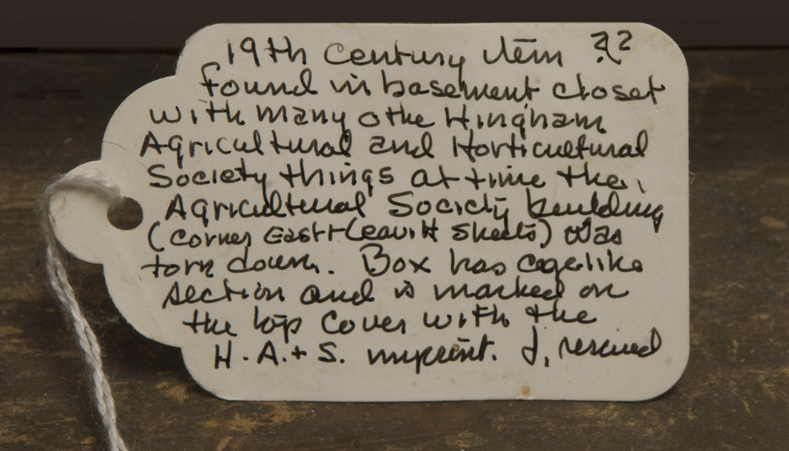 19th century item ??
found in basement closet
with many othe Hingham
Agricultural and Horticultural
Society things at time the
Agricultural Society building
(corner East + Leavitt Streets) was
torn down. Box has cagelike
section and is marked on
the top cover with the
H. A. + S. imprint. I, rescued